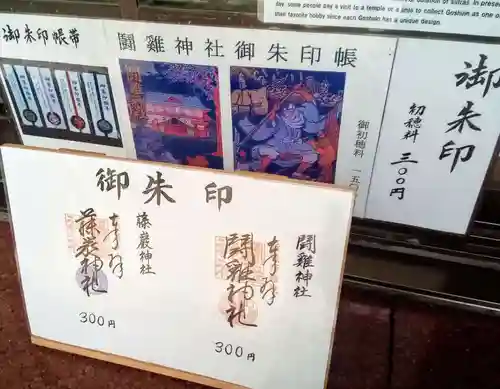 day, some people pay a visit to a temple or a
their favorite hobby since each Goshuin has a unique design.
御朱印帳帯
闘雞神社御朱印帳
御初穂料
御朱印
初穂料 三〇〇円
御朱印
藤巖神社
奉拝
藤巖神社
300円
闘雞神社
奉拝
闘雞神社
300円